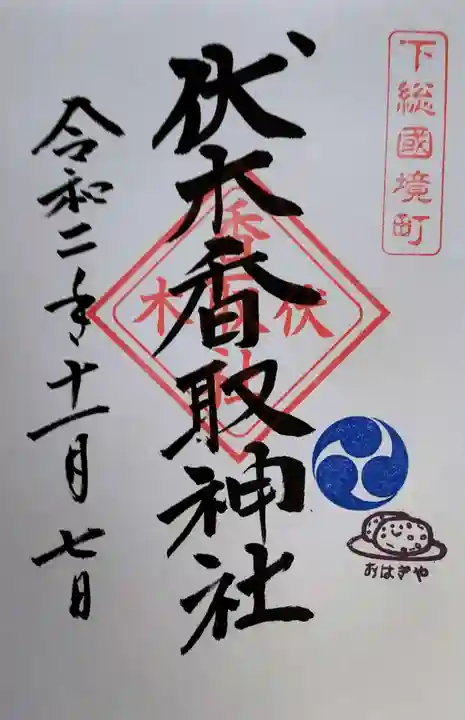 下総國境町
伏木香取神社
伏木
香取社
令和二年十一月七日
おはぎや